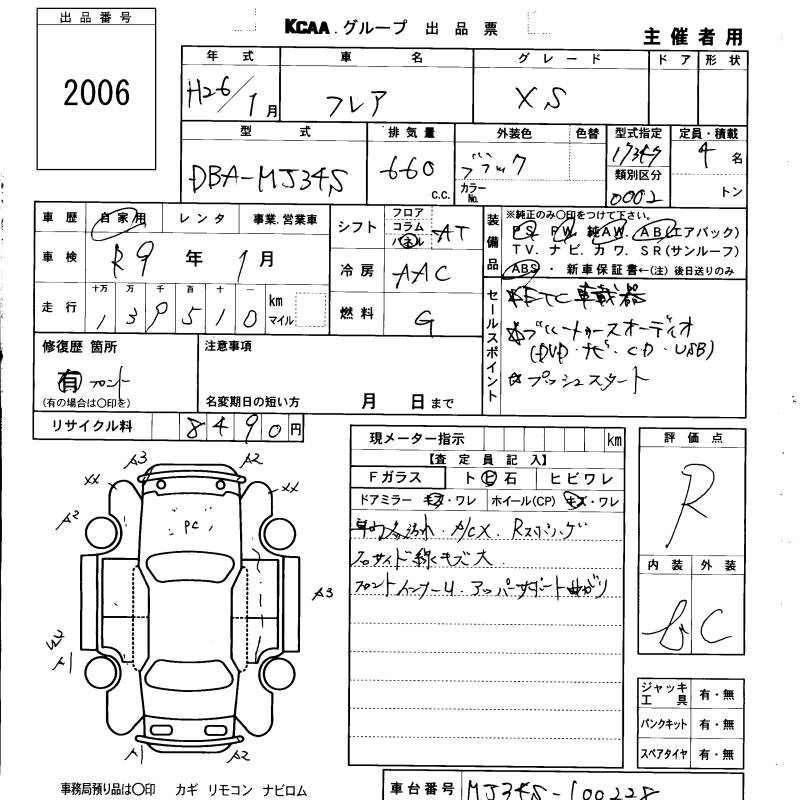 出品番号
2006
KCAA.グループ 出品票
主催者用
年式 車名 グレード ドア 形状
H26/1月 フレア XS
型式 排気量 外装色 色替 型式指定 定員・積載
DBA-MJ34S 660 c.c. ブラック カラーNo. 17347 4名
類別区分
0002 トン
車歴 自家用 レンタ 事業.営業車
車検 R9年1月
走行 十万 万 千 百 十 一
139510 km マイル
シフト フロア コラム パネル AT
冷房 AAC
燃料 G
装備品
※純正のみ〇印をつけて下さい。
PS. PW. 純AW. AB(エアバック)
TV. ナビ. カワ. SR(サンルーフ)
ABS・新車保証書←(注)後日送りのみ
セールスポイント
☆ETC車載器
☆ブルートゥースオーディオ
(DVD・ナビ・CD・USB)
☆プッシュスタート
修復歴 箇所
有 フロント
(有の場合は〇印を)
注意事項
名変期日の短い方 月 日まで
リサイクル料 8490円
現メーター指示 km
【査定員記入】
Fガラス ト ビ 石 ヒビワレ
ドアミラー キズ・ワレ ホイール(CP) キズ・ワレ
A/CX. Rスポハゲ
キズ大
フロントインナーU. アッパーサポート曲がり
評価点
R
内装 外装
C
ジャッキ工具 有・無
パンクキット 有・無
スペアタイヤ 有・無
A3 A2
XX XX
A2
PC
A3
A1
A1 A2
事務局預り品は〇印 カギ リモコン ナビロム
車台番号 MJ34S-100228